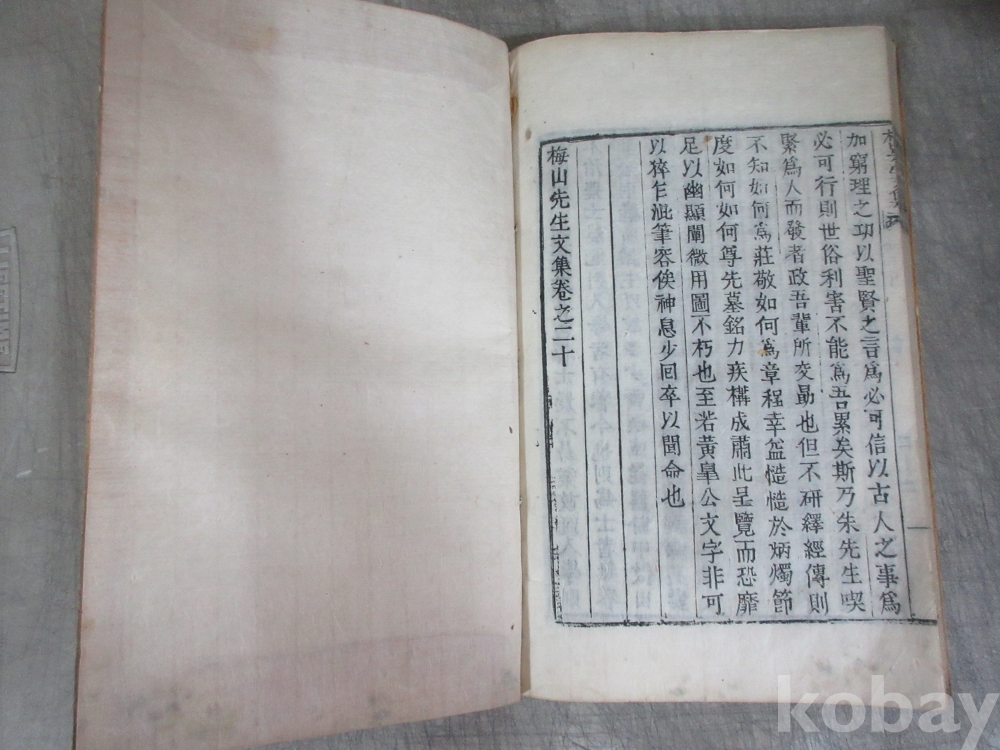 加窮理之功以聖賢之言爲必可信以古人之事爲
必可行則世俗利害不能爲吾累矣斯乃朱先生喫
緊爲人而發者政吾輩所交勗也但不硏繹經傳則
不知如何爲莊敬如何爲章程幸益慥慥於炳燭節
度如何如何尊先墓銘力疾構成肅此呈覽而恐靡
足以幽顯闡微用圖不朽也至若黃皐公文字非可
以猝乍泚筆容俟神息少回卒以聞命也
梅山先生文集卷之二十
kobay